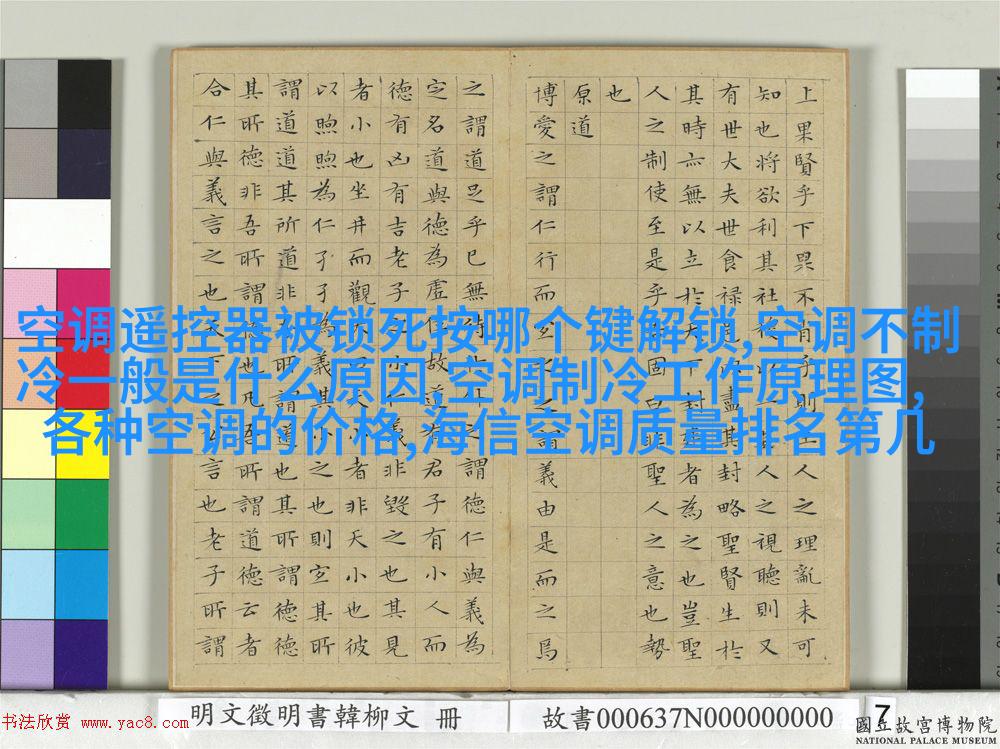 空调遥控器被锁死按哪个键解锁,空调不制
冷一般是什么原因,空调制冷工作原理图,
各种空调的价格,海信空调质量排名第几
上果賢乎下果不肖乎則生人之理亂未可
知也將欲利其社稷以一其人之視聽則又
有世大夫世食祿邑以盡其封略聖賢生於
其時亦無以立於天下封建者為之也豈聖
人之制使至是乎吾固曰非聖人之意也勢
也
原道
博愛之謂仁行而宜之之謂義由是而之焉
之謂道足乎已無待於外之謂德仁與義為
定名道與德為虛位故道有君子有小人而
德有凶有吉老子之小仁義非毀之也其見
者小也坐井而觀天曰天小者非天小也彼
以煦煦為仁孑孑為義其小之也則宜其所
謂道道其所道非吾所謂道也其所謂德德
其所德非吾所謂德也凡吾所謂道德云者
合仁與義言之也天下之公言也老子所謂
明文徵明書韓柳文 冊
故書000637N000000000
7
國立故宮博物院
NATIONAL PALACE MUSEUM
书法欣赏 www.yac8.com